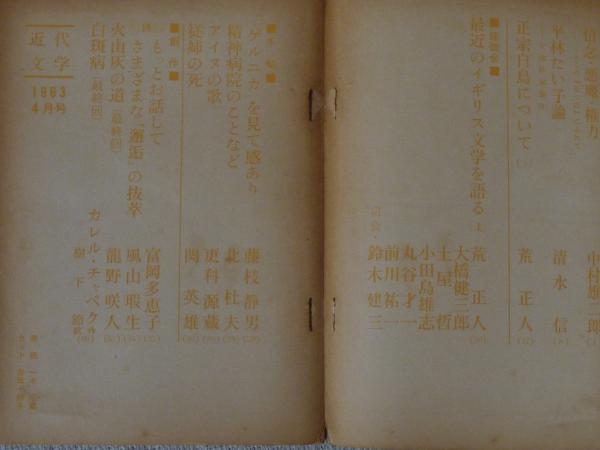 情念・悪魔・権力
中村雄二郎
平林たい子論
清水信
正宗白鳥について
荒正人
■座談会■
最近のイギリス文学を語る 上
荒正人
大橋健三郎
土屋哲
小田島雄志
丸谷才一
前川祐一
司会・鈴木建三
■手帖■
ゲルニカを見て感あり
藤枝静男
精神病院のことなど
北杜夫
アイヌの歌
更科源蔵
従姉の死
関英雄
■創作■
もっとお話して
富岡多恵子
さまざまな「邂逅」の抜萃
風山瑕生
火山灰の道(最終回)
龍野咲人
白斑病(最終回)
カレル・チャペク作
樹下節訳
近代文学
1963
4月号